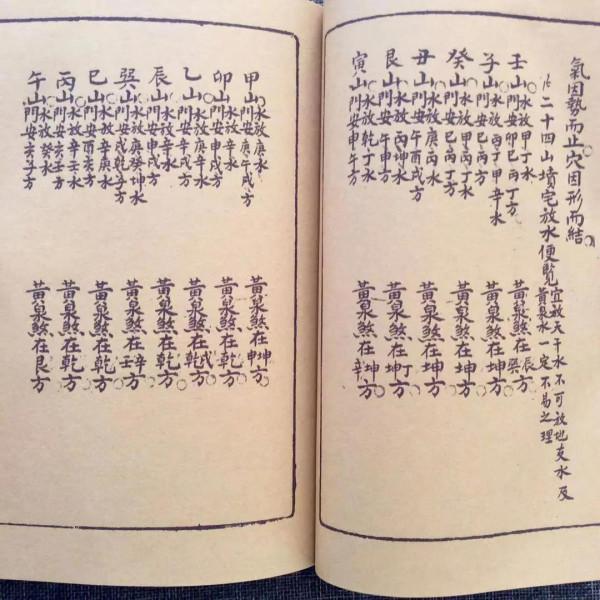 氣因勢而止穴因形而結
二十四山墳宅放水便覽 宜放天干水不可放地支水及黃泉水一定不易之理
壬山 水放甲丁水 門安卯巳丙丁方 黃泉煞在辰巽方
子山 水放丙丁甲辛水 門安巳丙方 黃泉煞在坤方
癸山 水放甲丙丁水 門安巳丙丁方 黃泉煞在坤方
丑山 水放庚丙水 門安午酉戌方 黃泉煞在坤方
艮山 水放丙坤水 門安午申方 黃泉煞在丁坤方
寅山 水放乾丁水 門安申午方 黃泉煞在坤辛方
甲山 水放庚水 門安庚午戌方 黃泉煞在坤申方
卯山 水放辛水 門安申戌方 黃泉煞在乾方
乙山 水放庚辛水 門安申戌方 黃泉煞在戌乾方
辰山 水放辛水 門安申戌方 黃泉煞在乾方
巽山 水放庚癸坤水 門安戌乾子方 黃泉煞在辛壬方
巳山 水放辛庚水 門安酉亥方 黃泉煞在乾方
丙山 水放辛壬水 門安亥壬方 黃泉煞在乾方
午山 水放癸水 門安亥子方 黃泉煞在艮方